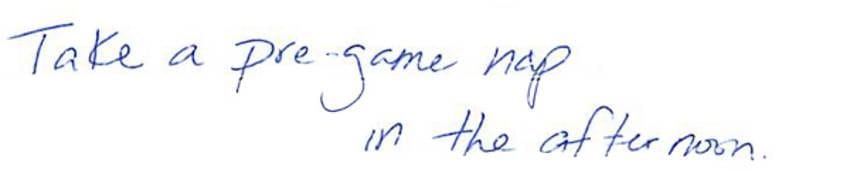 Take a pre-game nap
in the afternoon.